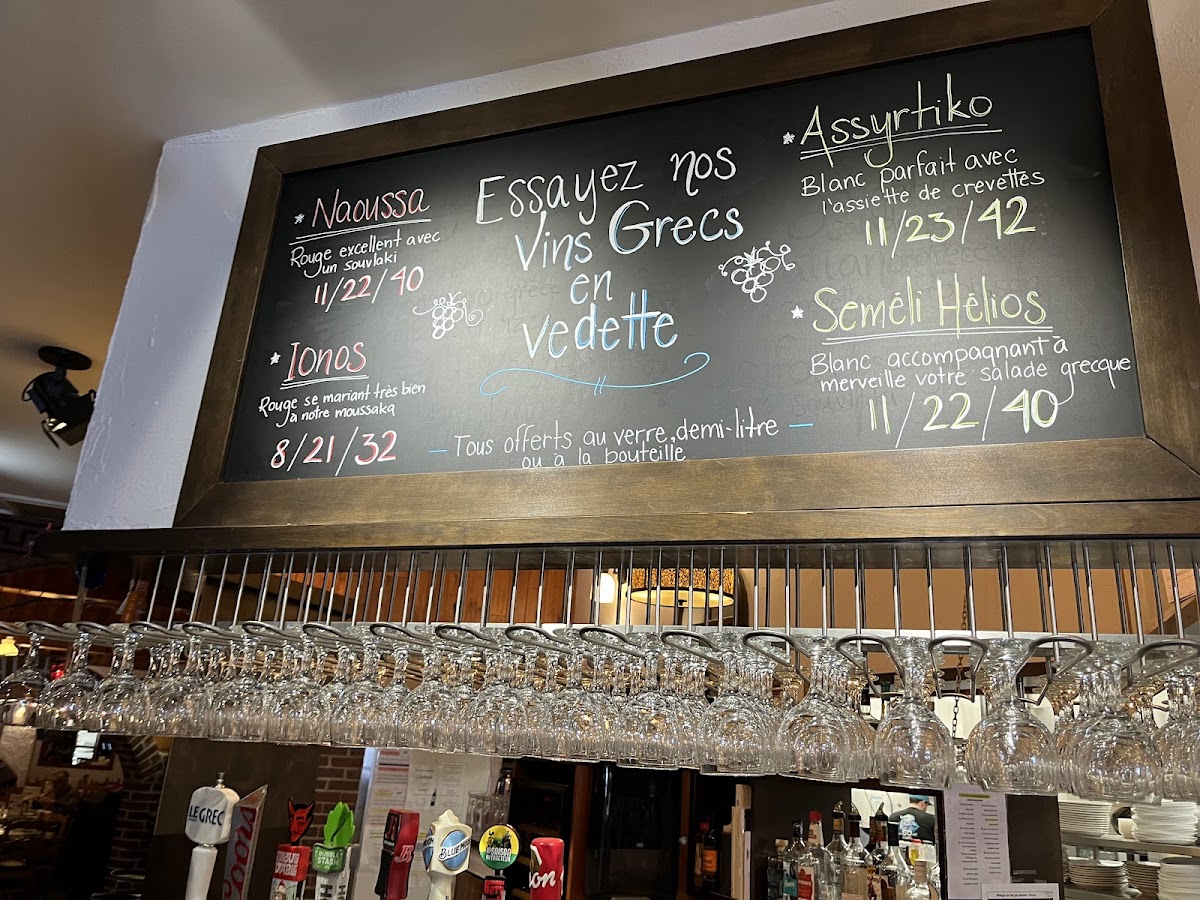 * Naoussa
Rouge excellent avec
un souvlaki
11/22/40
* Ionos
Rouge se mariant très bien
à notre moussaka
8/21/32
Essayez nos
Vins Grecs
en
vedette
– Tous offerts au verre, demi-litre –
ou à la bouteille
* Assyrtiko
Blanc parfait avec
l'assiette de crevettes
11/23/42
* Seméli Hélios
Blanc accompagnant à
merveille votre salade grecque
11/22/40
LE GREC
Coors
BLUE MOON